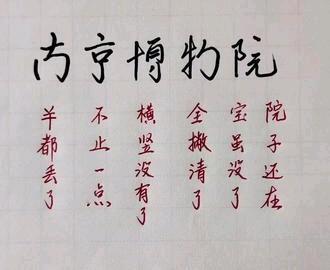 内亨博物院
院子还在
宝虽没了
全搬清了
横竖没有了
不止一点
羊都丢了